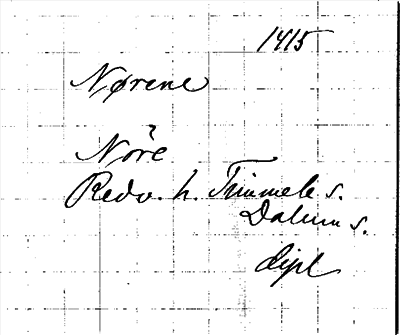 1415
Nørene
Nöre
Redv. h. Timmele s.
Dalum s.
dipl